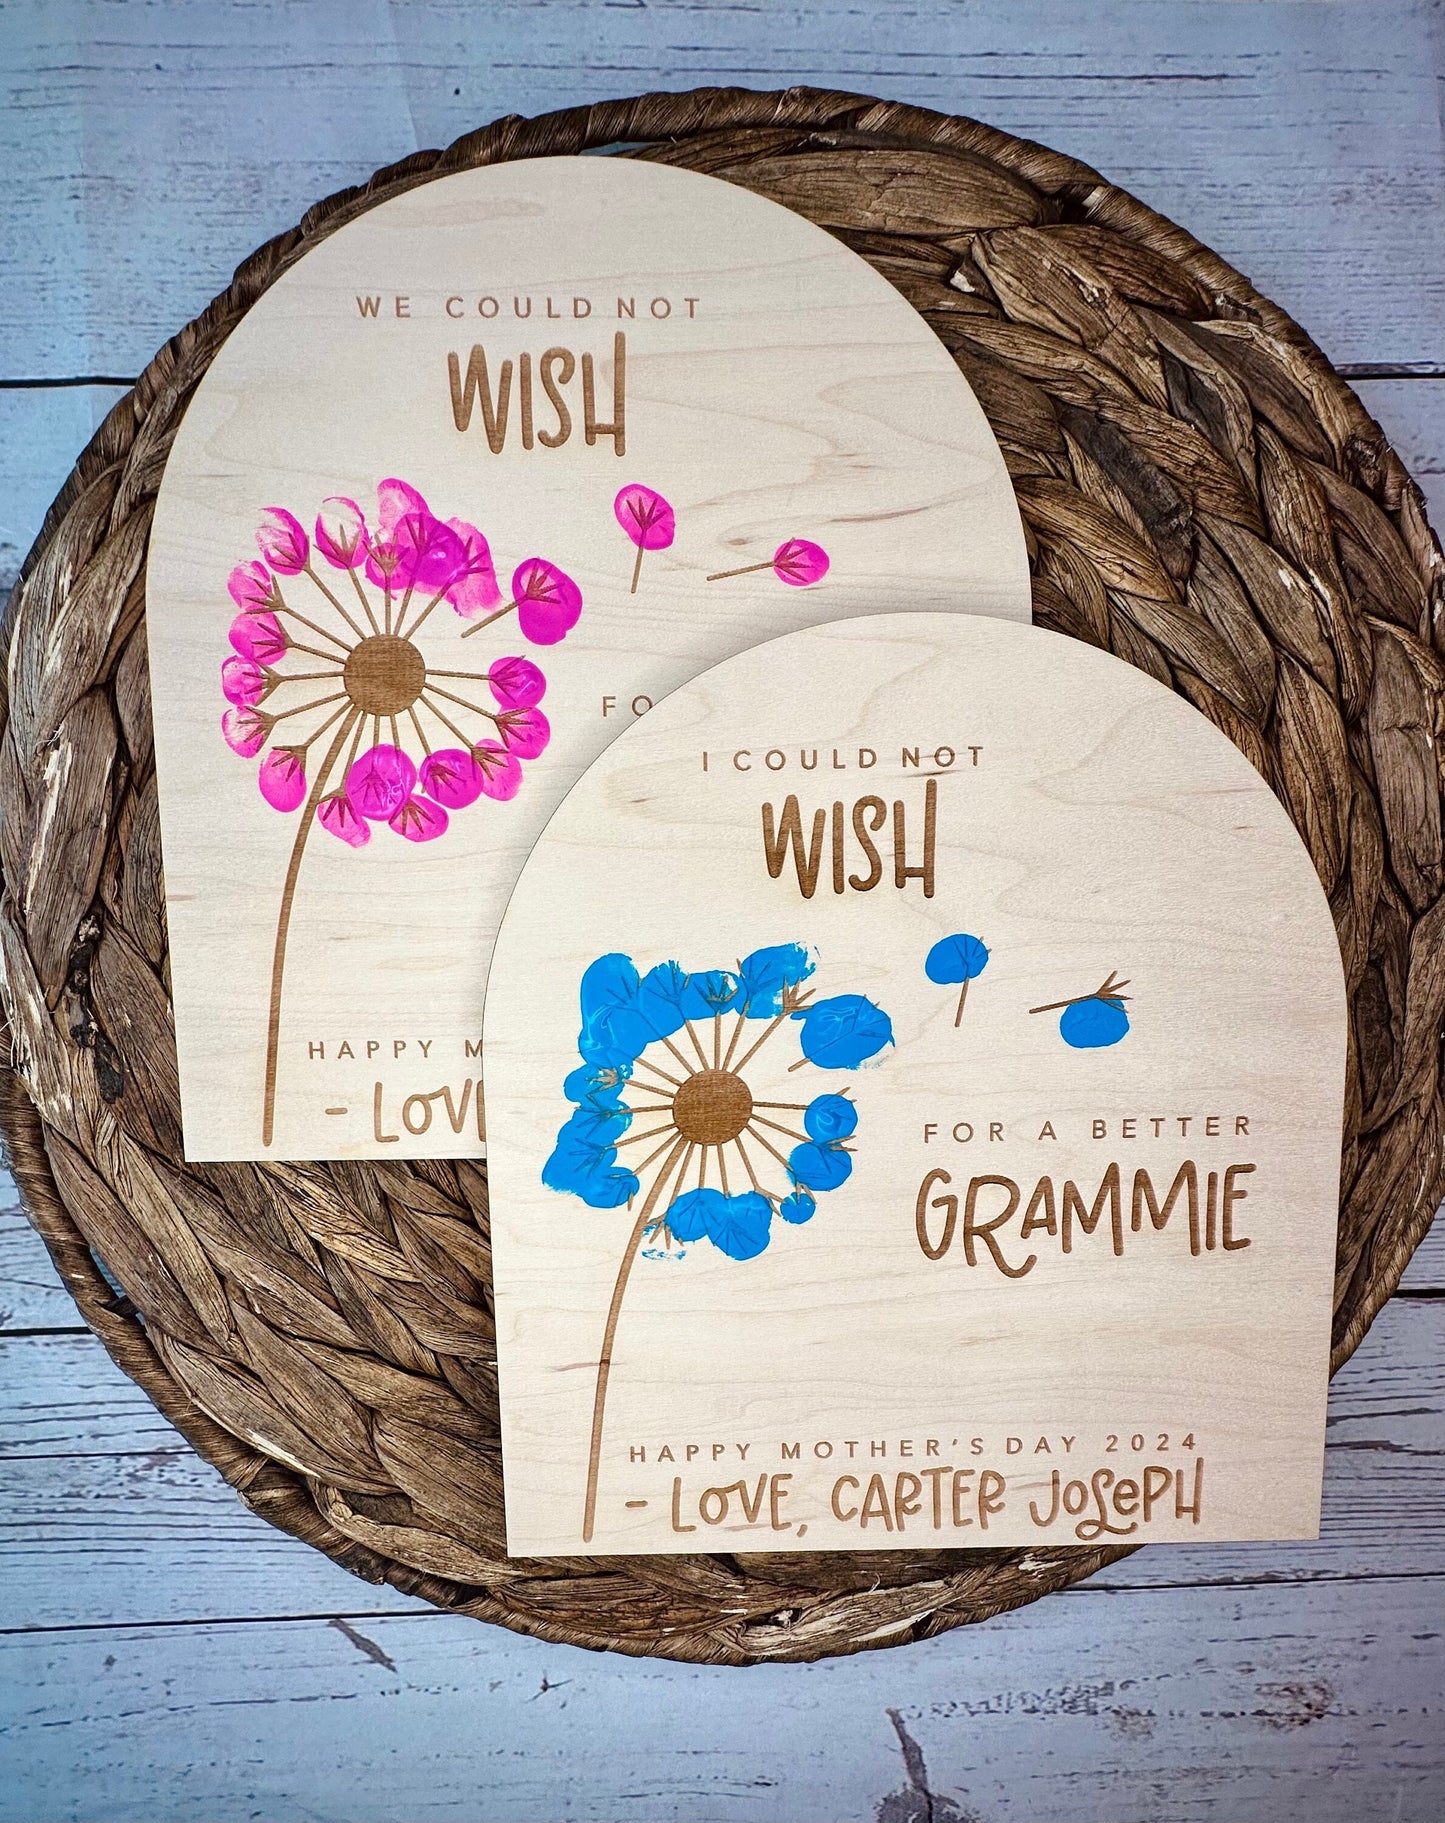 WE COULD NOT
WISH
HAPPY
I COULD NOT
WISH
FOR A BETTER
GRAMMIE
HAPPY MOTHER'S DAY 2024
- LOVE, CARTER JOSEPH